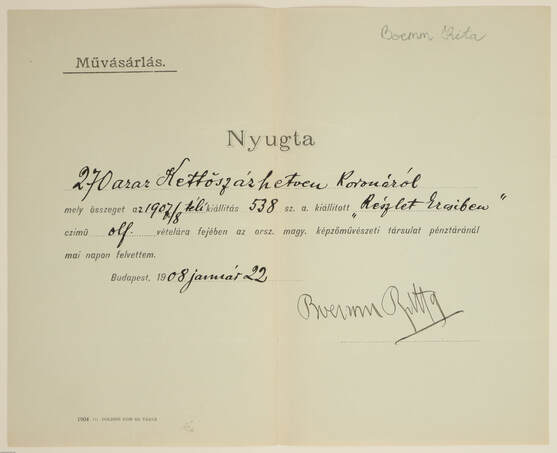 Boemm Rita
Művásárlás.
Nyugta
270 azaz Kettőszázhetven Koronáról
mely összeget az 1907/8 téli kiállítás 538 sz. a. kiállított „Részlet Ercsiben"
czímű olf. vételára fejében az orsz. magy. képzőművészeti társulat pénztáránál
mai napon felvettem.
Budapest, 1908 január 22
Boemm Ritta
1904